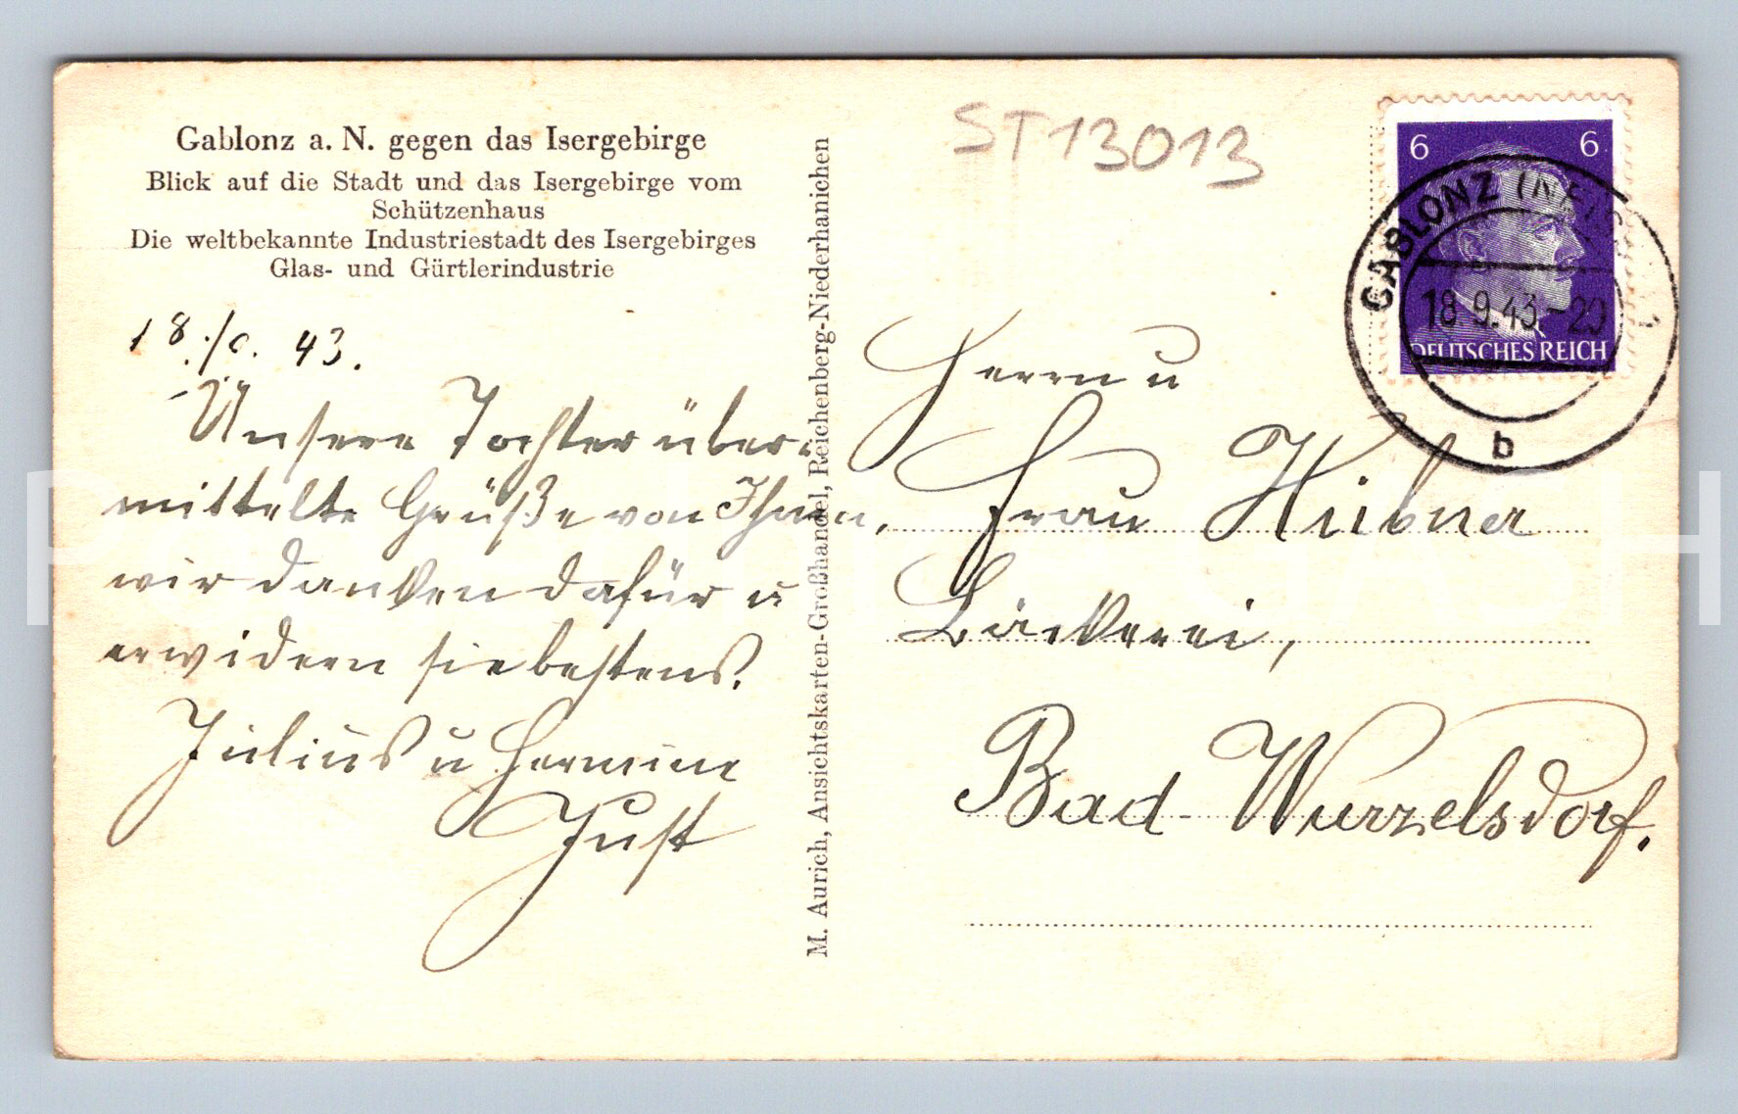 Gablonz a. N. gegen das Isergebirge
Blick auf die Stadt und das Isergebirge vom
Schützenhaus
Die weltbekannte Industriestadt des Isergebirges
Glas- und Gürtlerindustrie
18./9. 43.
Unsere Tochter über-
mittelte Grüße von Ihnen,
wir danken dafür u
erwidern sie bestens.
Julius u Hermine
Just
M. Aurich, Ansichtskarten-Großhandel, Reichenberg-Niederhanichen
ST13013
6 6
DEUTSCHES REICH
GABLONZ (NEISSE)
18.9.43-20
b
Herrn u
Frau Hübner
Bäckerei,
Bad-Wurzelsdorf.